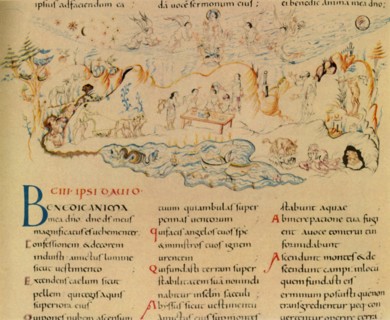 ipsius adfaciendum ea
da uoce sermonum eius;
ei benedic anima mea dno;
CIII. IPSI DAUID
BENEDIC ANIMA
mea dno dne ds meus
magnificatus es uehementer
Confessionem & decorem
induisti amictus lumine
sicut uestimento
Extendens caelum sicut
pellem qui tegis aquis
superiora eius
Qui ponis nubem ascensum
tuum qui ambulas super
pennas uentorum
Qui facis angelos tuos sps
& ministros tuos ignem
urentem
Qui fundasti terram super
stabilitatem suam non incli
nabitur in seculi
Abyssus sicut uestimentu
amictus eius super montes
stabunt aquae
Ab increpatione tua fugi
ent a uoce tonitrui tui
formidabunt
Ascendunt montes & de
scendunt campi in locu
quem fundasti eis
Terminum posuisti quem non
transgredientur neq con
uertentur operire terra